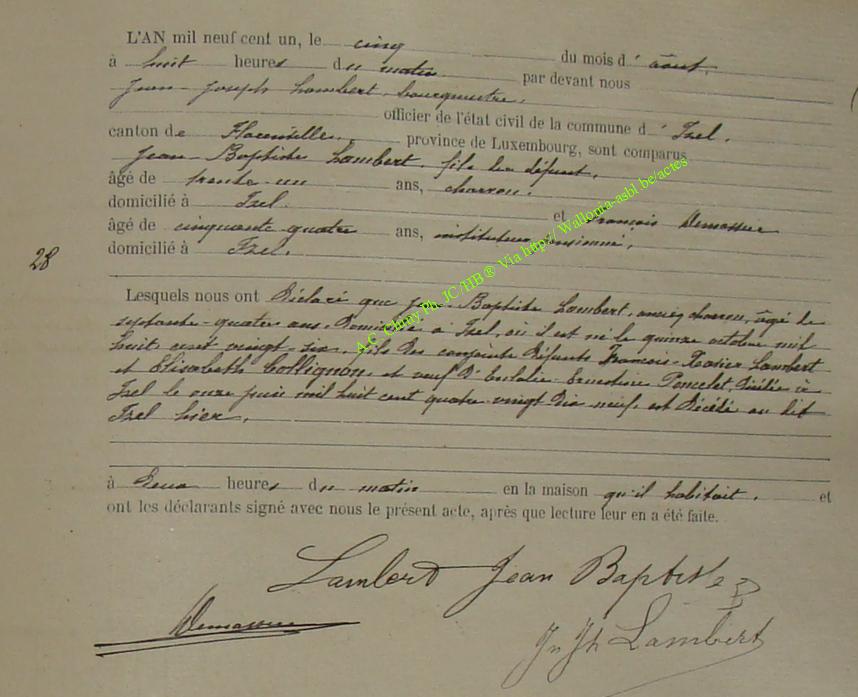 L'AN mil neuf cent un, le cinq du mois d' août,
à huit heures du matin par devant nous
Jean-Joseph Lambert, bourgmestre,
officier de l'état civil de la commune d' Izel,
canton de Florenville, province de Luxembourg, sont comparus
Jean-Baptiste Lambert, fils du défunt,
âgé de trente un ans, charron,
domicilié à Izel et François Demassier
âgé de cinquante quatre ans, instituteur pensionné,
domicilié à Izel.
28
Lesquels nous ont Déclaré que Jean-Baptiste Lambert, ancien charron, âgé de
septante-quatre ans, Domicilié à Izel, où il est né le quinze octobre mil
huit cent vingt-six, fils des conjoints défunts François-Xavier Lambert
et Elisabeth Collignon, et veuf d'Eulalie-Ernestine Poncelet, décédée à
Izel le onze juin mil huit cent quatre-vingt dix neuf, est décédé au dit
Izel hier,
à deux heures du matin en la maison qu'il habitait, et
ont les déclarants signé avec nous le présent acte, après que lecture leur en a été faite.
Lambert Jean Baptiste
Jn Jh Lambert
A.C. Chiny Ph. JC/HB ® Via http://Wallonia-asbl.be/actes